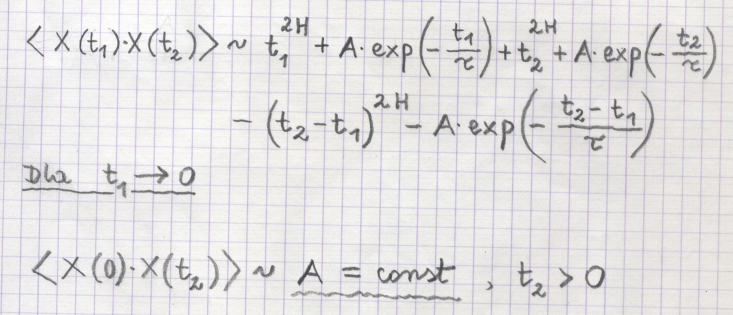 ⟨X(t₁)·X(t₂)⟩ ~ t₁^{2H} + A·exp(-t₁/τ) + t₂^{2H} + A·exp(-t₂/τ)
- (t₂-t₁)^{2H} - A·exp(-(t₂-t₁)/τ)
Dla t₁ → 0
⟨X(0)·X(t₂)⟩ ~ A = const , t₂ > 0